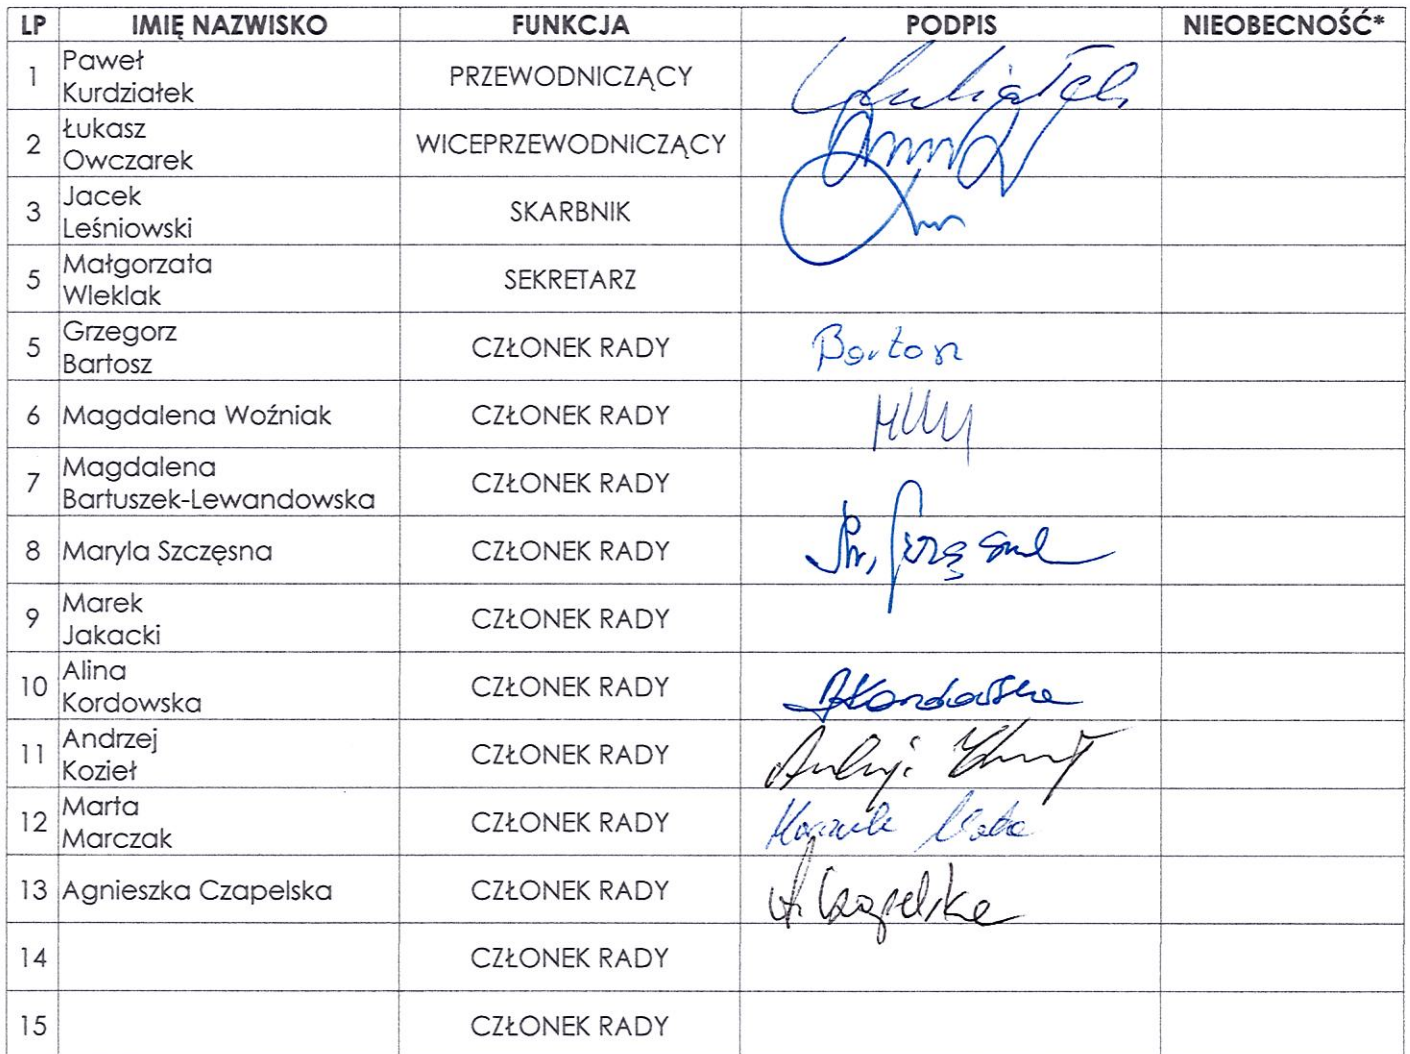 LP IMIĘ NAZWISKO FUNKCJA PODPIS NIEOBECNOŚĆ*
1 Paweł
Kurdziałek PRZEWODNICZĄCY
2 Łukasz
Owczarek WICEPRZEWODNICZĄCY
3 Jacek
Leśniowski SKARBNIK
5 Małgorzata
Wleklak SEKRETARZ
5 Grzegorz
Bartosz CZŁONEK RADY Bartosz
6 Magdalena Woźniak CZŁONEK RADY
7 Magdalena
Bartuszek-Lewandowska CZŁONEK RADY
8 Maryla Szczęsna CZŁONEK RADY
9 Marek
Jakacki CZŁONEK RADY
10 Alina
Kordowska CZŁONEK RADY AKordowska
11 Andrzej
Kozieł CZŁONEK RADY Andrzej
12 Marta
Marczak CZŁONEK RADY Marczak Marta
13 Agnieszka Czapelska CZŁONEK RADY A. Czapelska
14 CZŁONEK RADY
15 CZŁONEK RADY